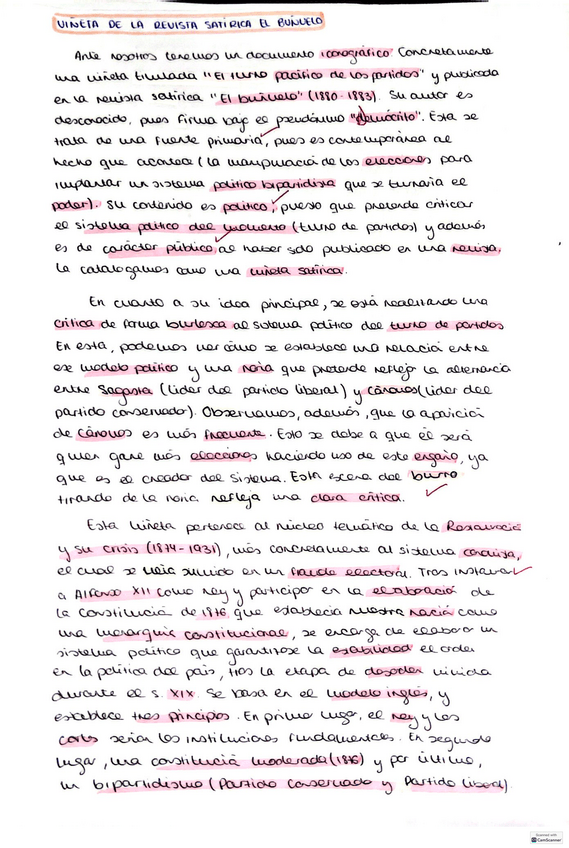 VIÑETA DE LA REVISTA SATÍRICA EL BUÑUELO
Ante nosotros tenemos un documento iconográfico Concretamente
una viñeta titulada "El turno pacífico de los partidos" y publicada
en la revista satírica "El buñuelo" (1880-1883). Su autor es
desconocido, pues firma bajo el pseudónimo "demócrito". Esta se
trata de una fuente primaria, pues es contemporánea al
hecho que acontece (la manipulación de las elecciones para
implantar un sistema político bipartidista que se turnaría el
poder). Su contenido es político, puesto que pretende criticar
el sistema político del momento (turno de partidos) y además
es de carácter público, al haber sido publicado en una revista,
la catalogamos como una viñeta satírica.
En cuanto a su idea principal, se está realizando una
crítica de forma burlesca al sistema político del turno de partidos
En esta, podemos ver cómo se establece una relación entre
ese modelo político y una noria que pretende reflejar la alternancia
entre Sagasta (líder del partido liberal) y Cánovas (líder del
partido conservador). Observamos, además, que la aparición
de Cánovas es más frecuente. Esto se debe a que él será
quien gane más elecciones haciendo uso de este engaño, ya
que es el creador del sistema. Esta escena del burro
tirando de la noria refleja una clara crítica.
Esta viñeta pertenece al núcleo temático de la Restauración
y su crisis (1874-1931), más concretamente al sistema canovista,
el cual se veía sumido en un fraude electoral. Tras instaurar
a Alfonso XII como rey y participar en la elaboración de
la Constitución de 1876 que establecía nuestra nación como
una monarquía constitucional, se encarga de elaborar un
sistema político que garantizase la estabilidad el orden
en la política del país, tras la etapa de desorden vivida
durante el s. XIX. Se basa en el modelo inglés, y
establece tres principios. En primer lugar, el rey y las
cortes serían las instituciones fundamentales. En segundo
lugar, una constitución moderada (1876) y por último,
un bipartidismo (Partido Conservador y Partido Liberal).
Scanned with
CamScanner